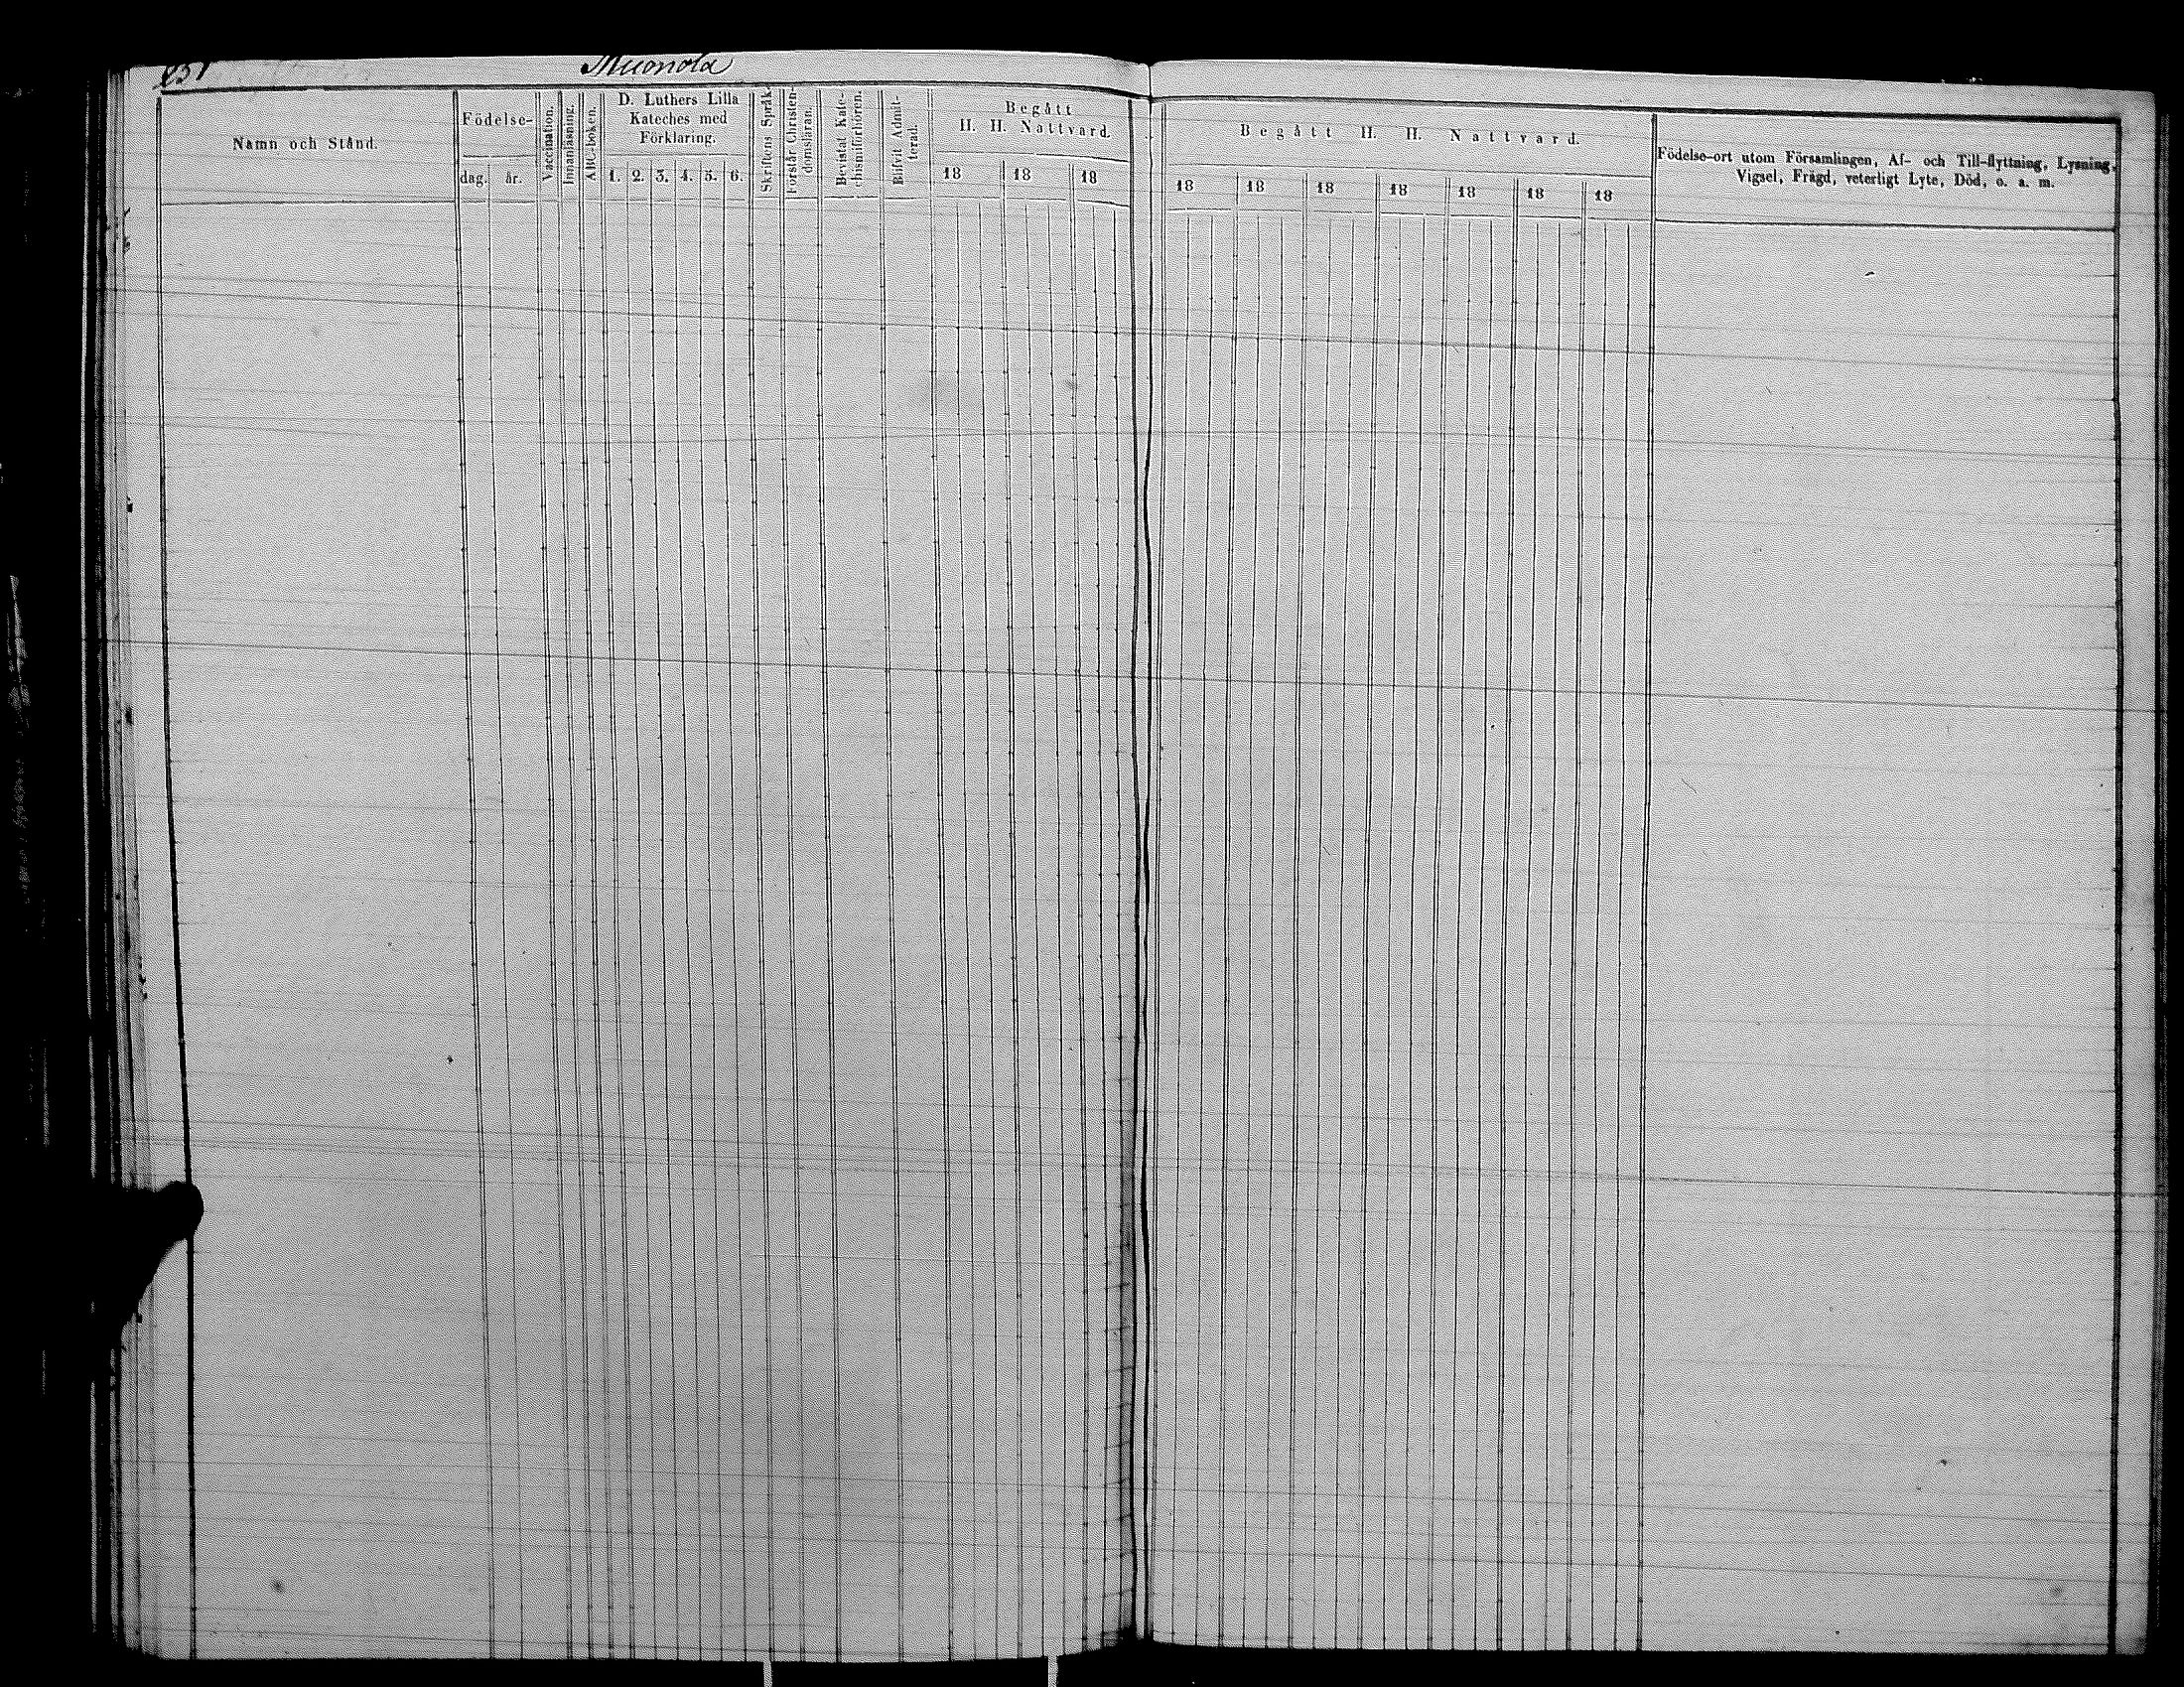 251 Muonola
Namn och Stånd.
Födelse-
dag. år.
Vaccination.
Innanläsning.
ABC-boken.
D. Luthers Lilla
Kateches med
Förklaring.
1. 2. 3. 4. 5. 6.
Skriftens Språk.
Förstår Christen-
domsläran.
Bevistat Kate-
chismiförhören.
Blifvit Admit-
terad.
Begått
H. H. Nattvard.
18 18 18
Begått H. H. Nattvard.
18 18 18 18 18 18 18
Födelse-ort utom Församlingen, Af- och Till-flyttning, Lysning,
Vigsel, Frägd, veterligt Lyte, Död, o. a. m.